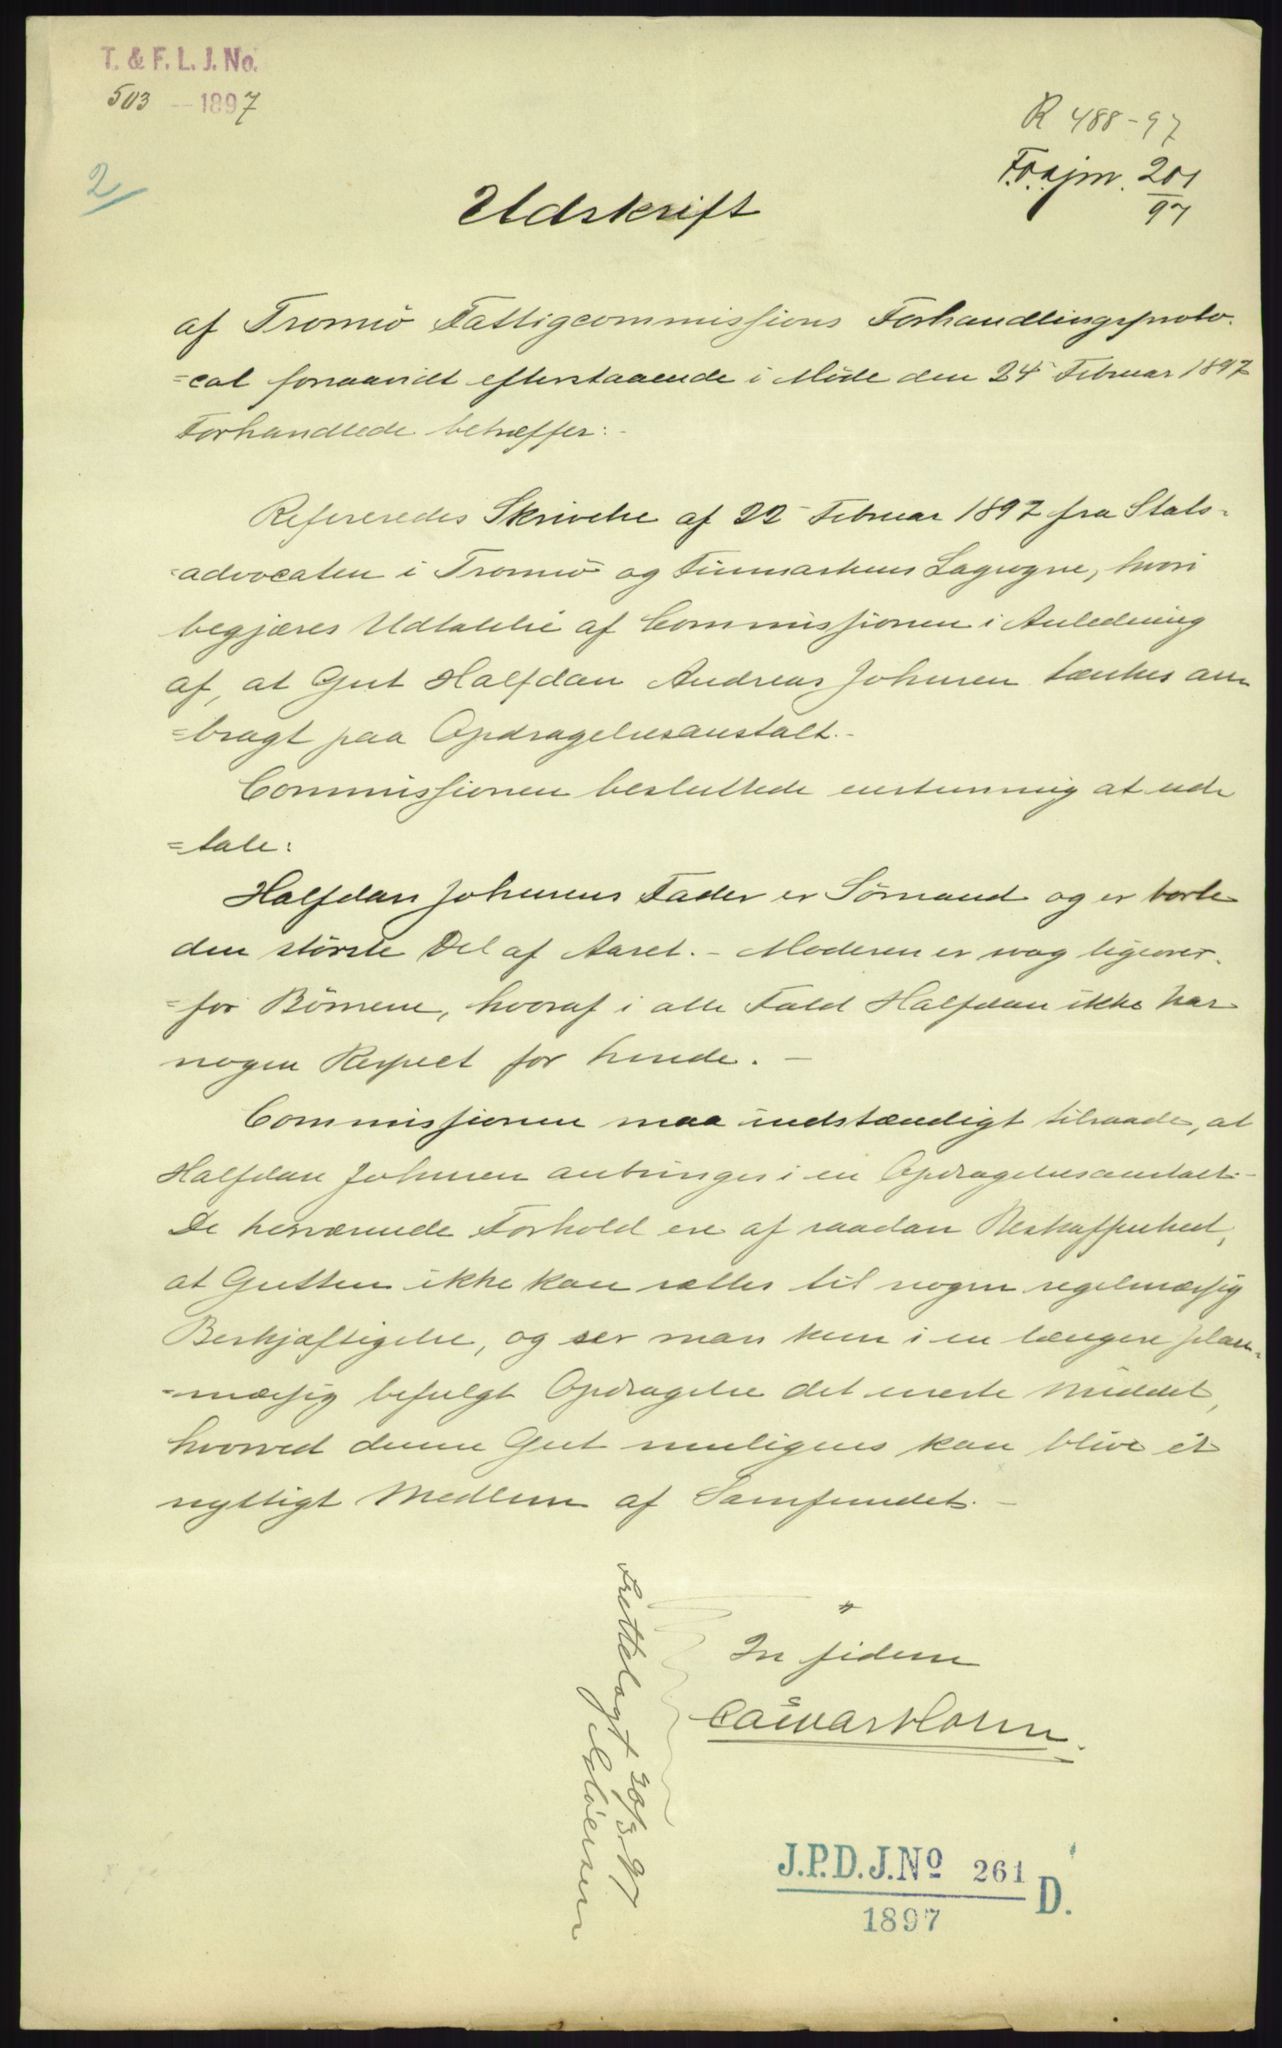 T. & F. L. J. No.
503 — 1897
R 488-97
201
97
2/
Udskrift
af Tromsö Fattigcommissjons Forhandlingsproto-
=col forsaavidt efterstaaende i Möde den 24 Februar 1897
Forhandlede betræffer:-
Refereredes Skrivelse af 22 Februar 1897 fra Stats-
=advocaten i Tromsö og Finmarkens Lagsogne, hvori
begjæres Udtalelse af Commissjonen i Anledning
af, at Gut Halfdan Andreas Johnsen tænkes an
=bragt paa Opdragelsesanstalt.-
Commissjonen besluttede enstemmig at ud
=tale:
Halfdan Johnsens Fader er Sömand og er borte
den störste Del af Aaret. - Moderen er svag ligeover-
=for Börnene, hvoraf i alle Fald Halfdan ikke har
nogen Respect for hende. -
Commissjonen maa indstændigt tilraade, at
Halfdan Johnsen anbringes i en Opdragelsesanstalt.-
De herværende Forhold ere af saadan Beskaffenhed,
at Gutten ikke kan sættes til nogen regelmæssig
Beskjæftigelse, og ser man kun i en længere plan-
=mæssig befulgt Opdragelse det eneste Middel,
hvorved denne Gut muligens kan blive et
nyttigt Medlem af Samfundet. -
In fidem
Fremlagt 20/3 97
J.P.D.J.No 261 D.
1897